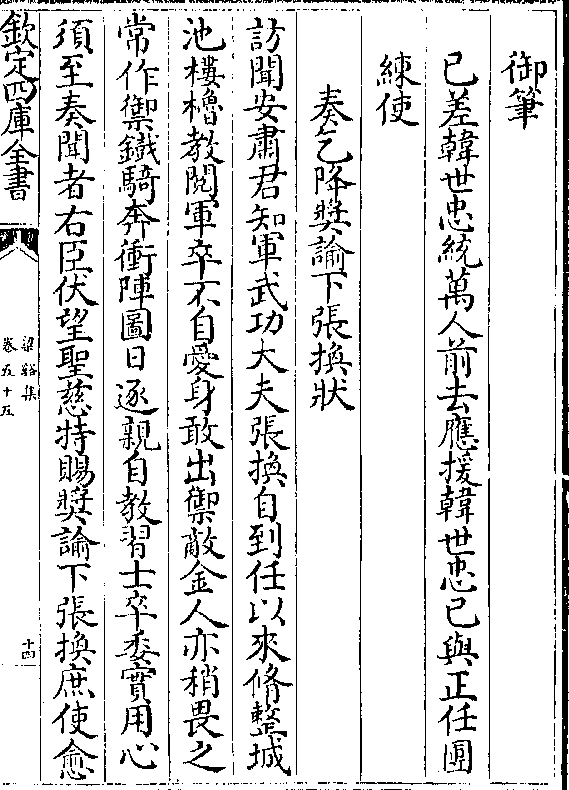 御筆
已差韓世忠統萬人前去應援韓世忠已與正任團
練使
奏乞降奬諭下張換狀
訪聞安肅君知軍武功大夫張換自到任以來脩整城
池樓櫓教閲軍卒不自愛身敢出禦敵金人亦稍畏之
常作禦鐵騎奔衝陣圖日逐親自教習士卒委實用心
須至奏聞者右臣伏望聖慈特賜奬諭下張換庶使愈
欽定四庫全書
梁谿集
卷五十五
十四